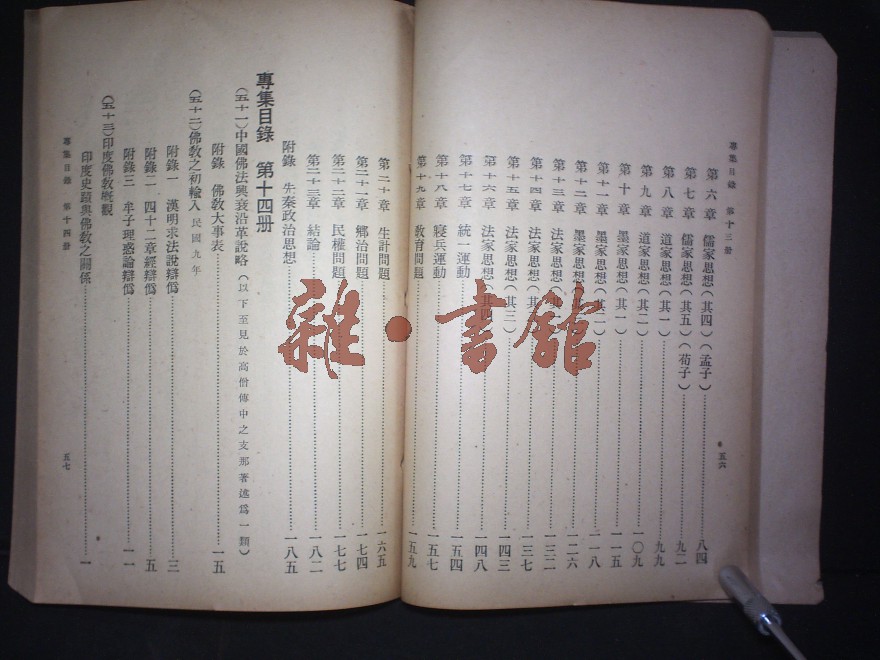 專集目錄 第十三册 五六
第六章 儒家思想(其四)(孟子)……八四
第七章 儒家思想(其五)(荀子)……九二
第八章 道家思想(其一)……九九
第九章 道家思想(其二)……一〇九
第十章 墨家思想(其一)……一一五
第十一章 墨家思想(其二)……一一八
第十二章 墨家思想……一二六
第十三章 法家思想(其……一三二
第十四章 法家思想……一三七
第十五章 法家思想(其三)……一四三
第十六章 法家思想(其四)……一四八
第十七章 統一運動……一五四
第十八章 寢兵運動……一五七
第十九章 教育問題……一五九
第二十章 生計問題……一六五
第二十一章 鄉治問題……一七四
第二十二章 民權問題……一七七
第二十三章 結論……一八二
附錄 先秦政治思想……一八五
專集目錄 第十四册
(五十一)中國佛法興衰沿革說略(以下至見於高僧傳中之支那著述爲一類)
附錄 佛教大事表……一五
(五十二)佛教之初輸入 民國九年
附錄一 漢明求法說辯僞……三
附錄二 四十二章經辯僞……五
附錄三 牟子理惑論辯僞……一一
(五十三)印度佛教概觀
印度史蹟與佛教之關係……一
專集目錄 第十四册 五七
雜·書館